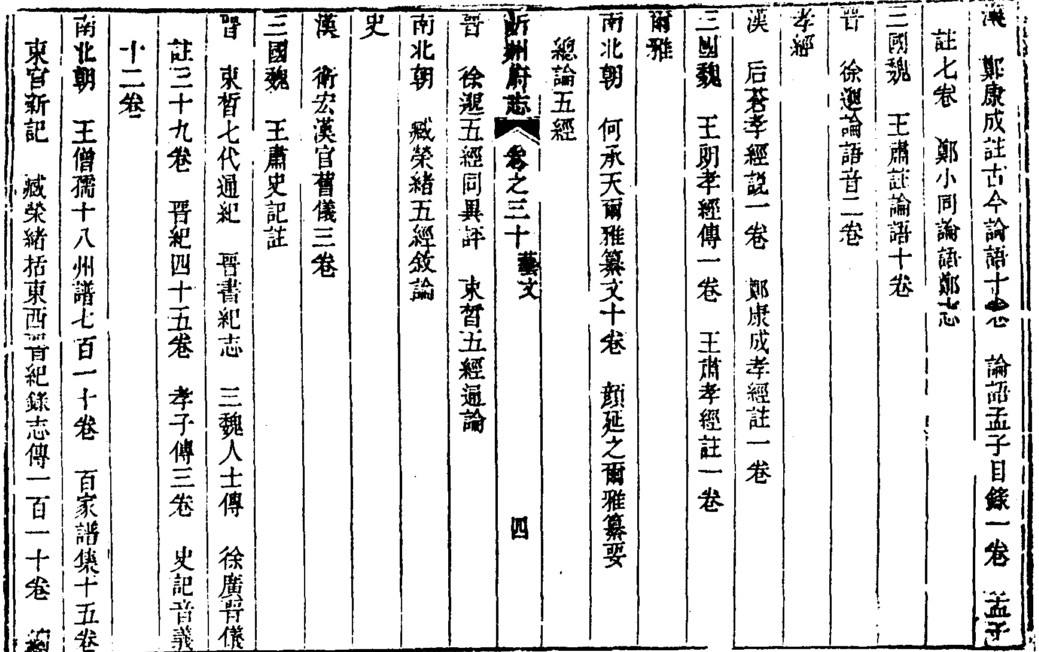 漢　鄭康成註古今論語十卷　論語孟子目錄一卷　孟子
註七卷　鄭小同論語鄭志
三國魏　王肅註論語十卷
晉　徐邈論語音二卷
孝經
漢　后蒼孝經說一卷　鄭康成孝經註一卷
三國魏　王朗孝經傳一卷　王肅孝經註一卷
爾雅
南北朝　何承天爾雅纂文十卷　顔延之爾雅纂要
總論五經
沂州府志　卷之三十　藝文　四
晉　徐邈五經同異評　束晳五經通論
南北朝　臧榮緒五經敘論
史
漢　衛宏漢官舊儀三卷
三國魏　王肅史記註
晉　束晳七代通紀　晋書紀志　三魏人士傳　徐廣晋儀
註三十九卷　晋紀四十五卷　孝子傳三卷　史記音義
十二卷
南北朝　王僧孺十八州譜七百一十卷　百家譜集十五卷
東宮新記　臧榮緒括東西晋紀錄志傳一百一十卷